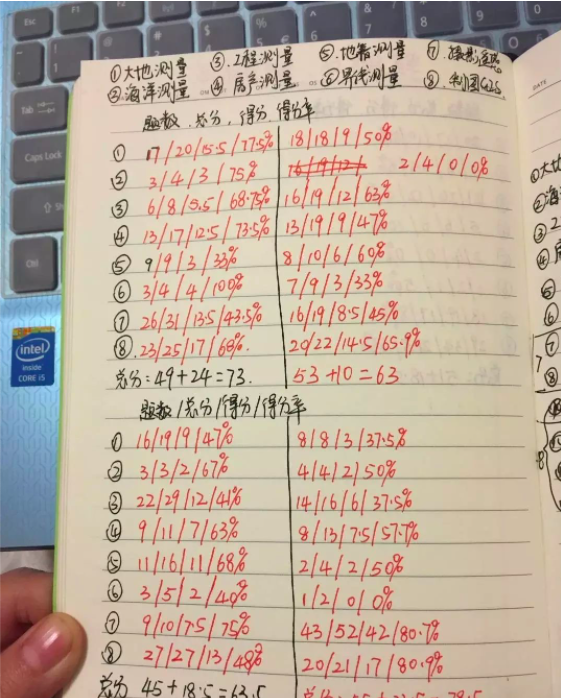 Esc
F1
F2
F3
Tab
Caps Lock
Shift
Ctrl
intel
inside
CORE i5
DATE
①大地测量 ③工程测量 ⑤地籍测量 ⑦摄影遥感
②海洋测量 ④房产测量 ⑥界线测量 ⑧制图GIS
题数、总分、得分、得分率
① 17/20/15.5/77.5% 18/18/9/50%
② 3/4/3/75% 16/19/12/ 2/4/0/0%
③ 6/8/5.5/68.75% 16/19/12/63%
④ 13/17/12.5/73.5% 13/19/9/47%
⑤ 9/9/3/33% 8/10/6/60%
⑥ 3/4/4/100% 7/9/3/33%
⑦ 26/31/13.5/43.5% 16/19/8.5/45%
⑧ 23/25/17/68% 20/22/14.5/65.9%
总分:49+24=73. 53+10=63
题数/总分/得分/得分率
① 16/19/9/47% 8/8/3/37.5%
② 3/3/2/67% 4/4/2/50%
③ 22/29/12/41% 14/16/6/37.5%
④ 9/11/7/63% 8/13/7.5/57.7%
⑤ 11/16/11/68% 2/4/2/50%
⑥ 3/5/2/40% 1/2/0/0%
⑦ 9/10/7.5/75% 43/52/42/80.7%
⑧ 27/27/13/48% 20/21/17/80.9%
总分 45+18.5=63.5